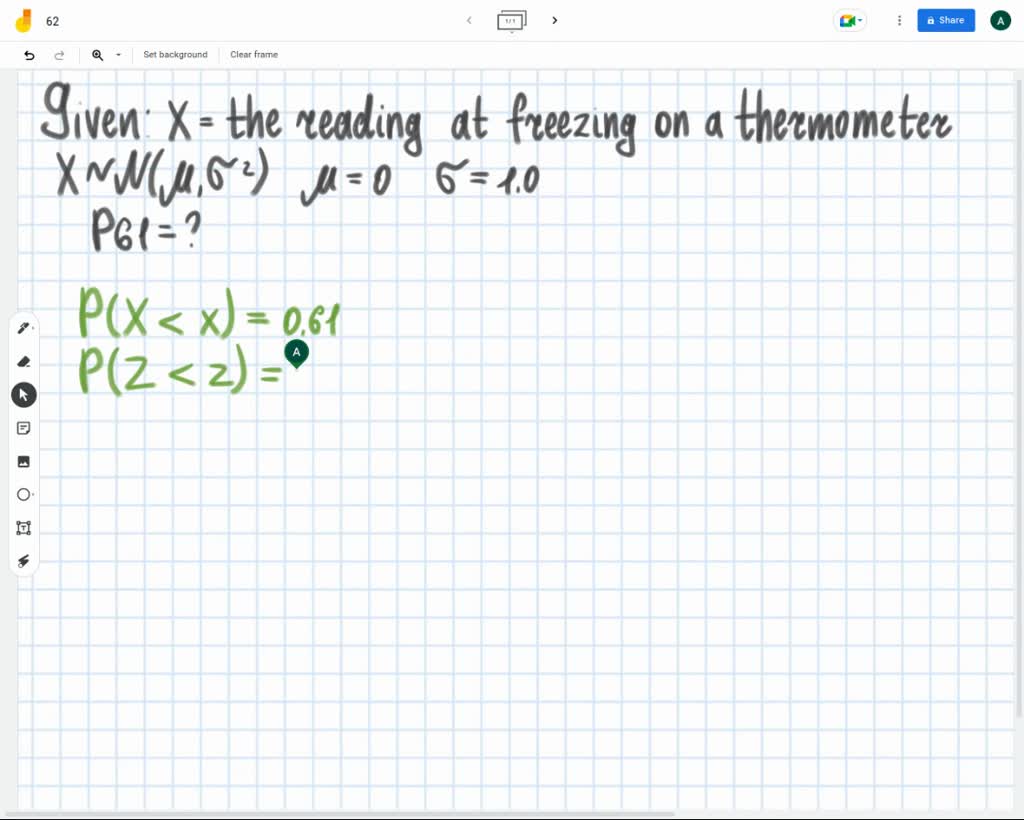 62
1/1
Share
A
Set background
Clear frame
Given: X = the reading at freezing on a thermometer
X ~ N(μ, σ²) μ = 0 σ = 1.0
P61 = ?
P(X < x) = 0.61
A
P(Z < z) =